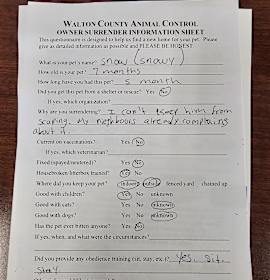 WALTON COUNTY ANIMAL CONTROL
OWNER SURRENDER INFORMATION SHEET
This questionnaire is designed to help us find a new home for your pet. Please
give as detailed information as possible and PLEASE BE HONEST
What is your pet's name? Snow (snowy)
How old is your pet? 7 months
How long have you had this pet? 5 month
Did you get this pet from a shelter or rescue? Yes No
If yes, which organization?
Why are you surrendering? I can't keep him from
scaping. My neighbours already complaining
about it.
Current on vaccinations? Yes No
If yes, which veterinarian?
Fixed (spayed/neutered)? Yes No
Housebroken/litterbox trained? Yes No
Where did you keep your pet? indoors outside fenced yard chained up
Good with children? Yes No unknown
Good with cats? Yes No unknown
Good with dogs? Yes No unknown
Has the pet ever bitten anyone? Yes No
If yes, when, and what were the circumstances?
Did you provide any obedience training (sit, stay, etc.)? Yes, sit,
stay